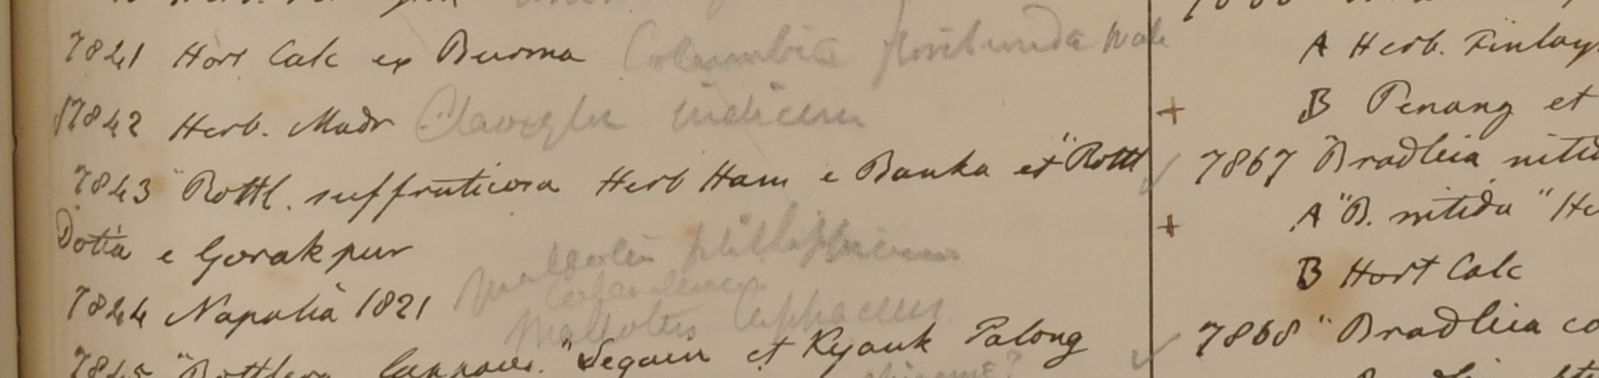 7841 Hort Calc ex Burma Columbia floribunda Wall
7842 Herb. Madr Claoxylon indicum
7843 "Rottl. suffruticosa Herb Ham e Banka et "Rottl
Dotia e Gorakpur
Mallotus philippinensis
7844 Napalia 1821
Mallotus
7845 "Rottlera "Segain et Kyouk Palong
A Herb. Finlays
+ B Penang et
7867 "Bradleia nitid
+ A "B. nitida" He
B Hort Calc
7868 "Bradleia co